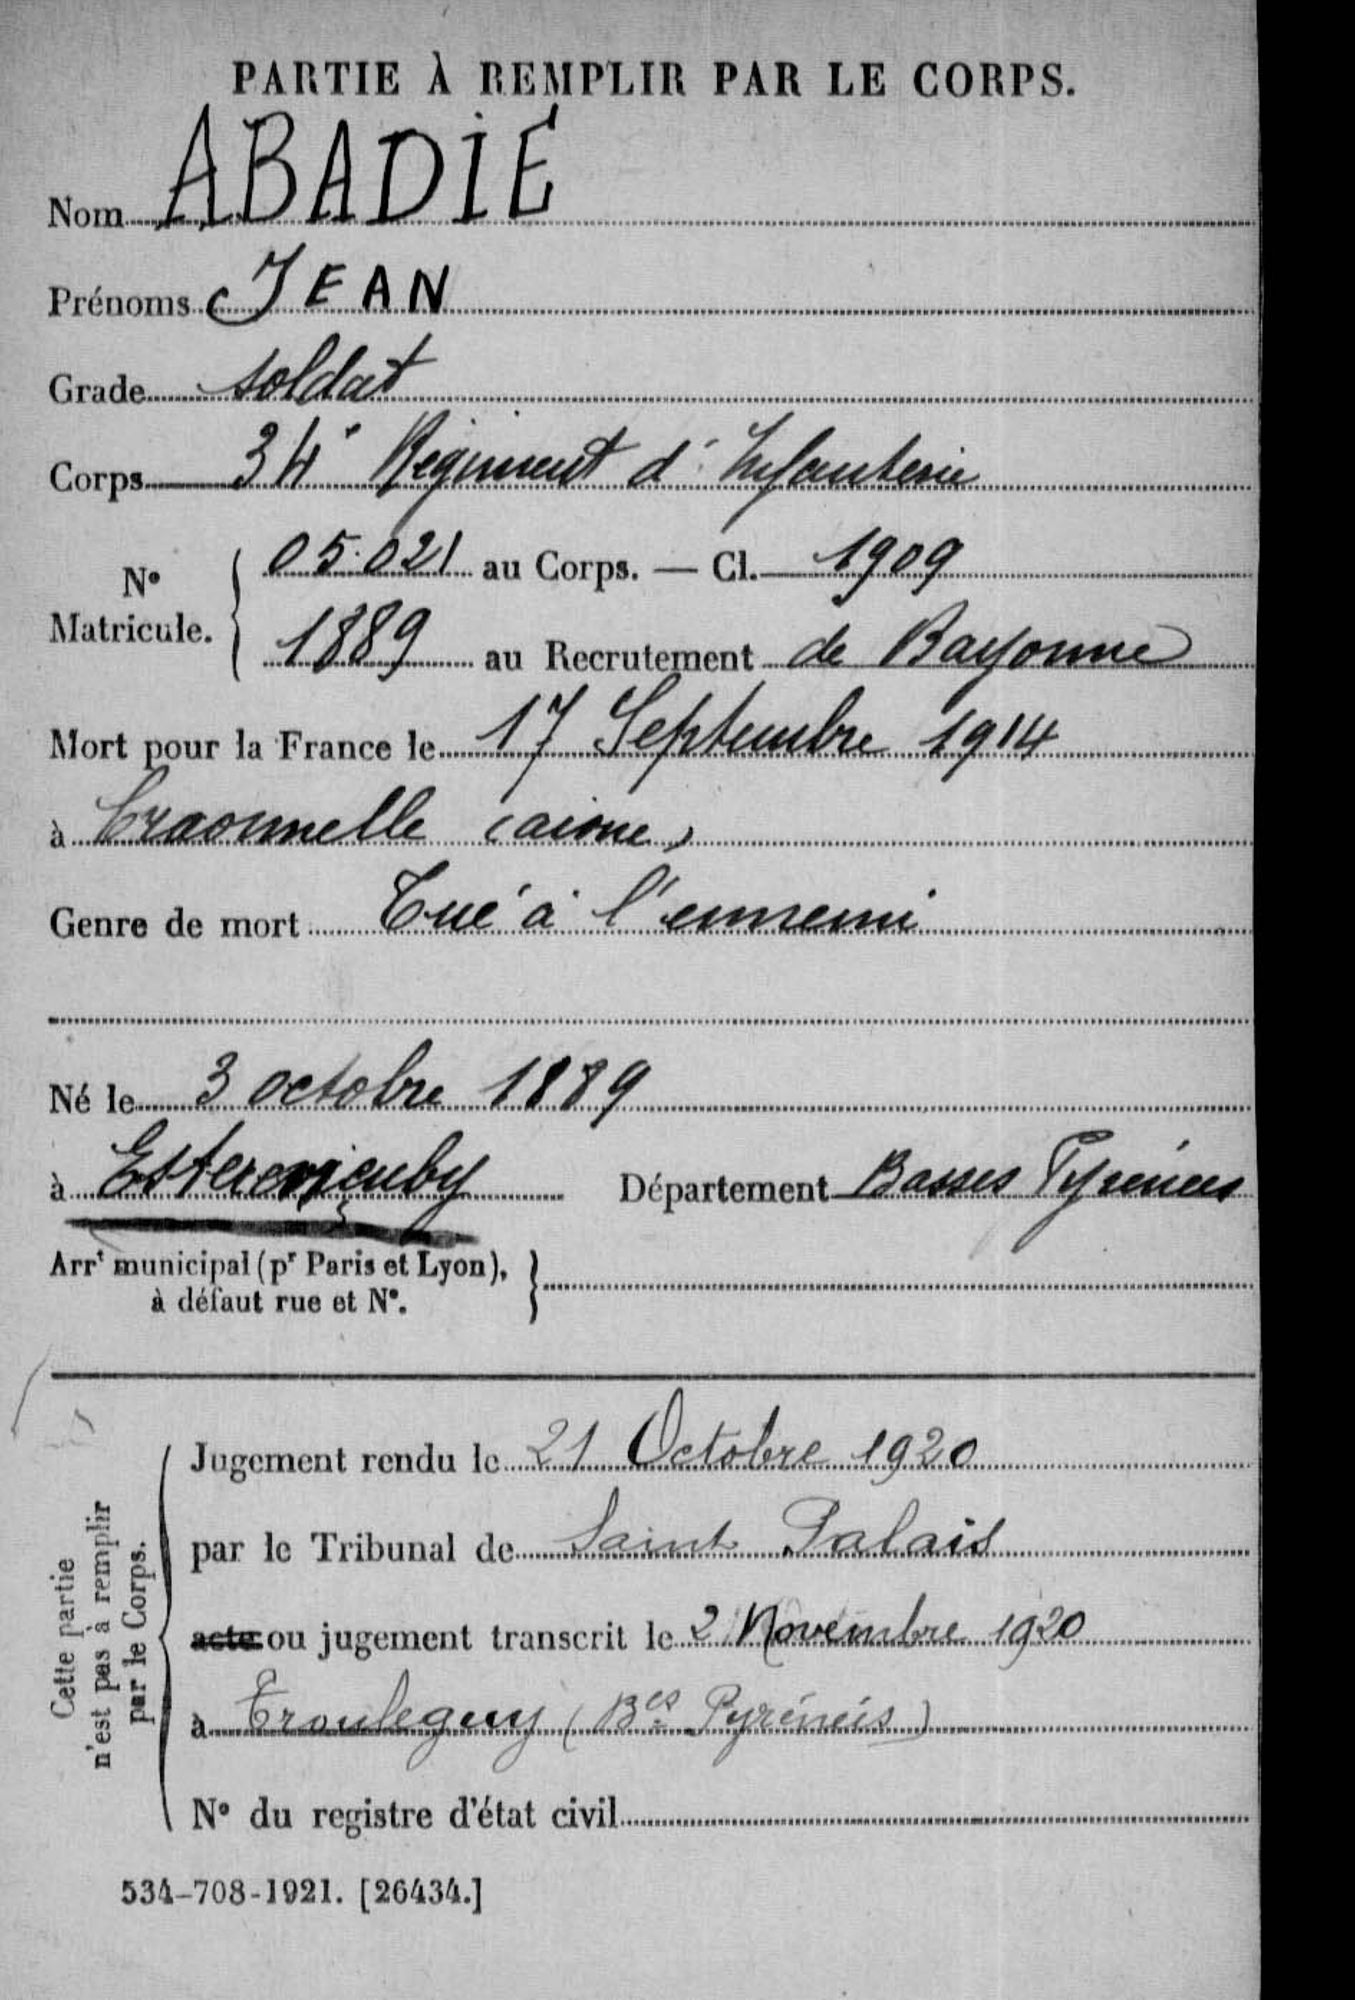 PARTIE À REMPLIR PAR LE CORPS.
Nom ABADIE
Prénoms JEAN
Grade soldat
Corps 34e Régiment d'Infanterie
N° Matricule. 05.021 au Corps. — Cl. 1909
1889 au Recrutement de Bayonne
Mort pour la France le 17 Septembre 1914
à Craonnelle (aisne)
Genre de mort Tué à l'ennemi
Né le 3 octobre 1889
à Esterençuby Département Basses Pyrénées
Arrt municipal (pr Paris et Lyon),
à défaut rue et N°.
Cette partie
n'est pas à remplir
par le Corps.
Jugement rendu le 21 Octobre 1920
par le Tribunal de Saint Palais
acte ou jugement transcrit le 2 Novembre 1920
à Irouleguy (Bses Pyrénéis)
N° du registre d'état civil
534-708-1921. [26434.]